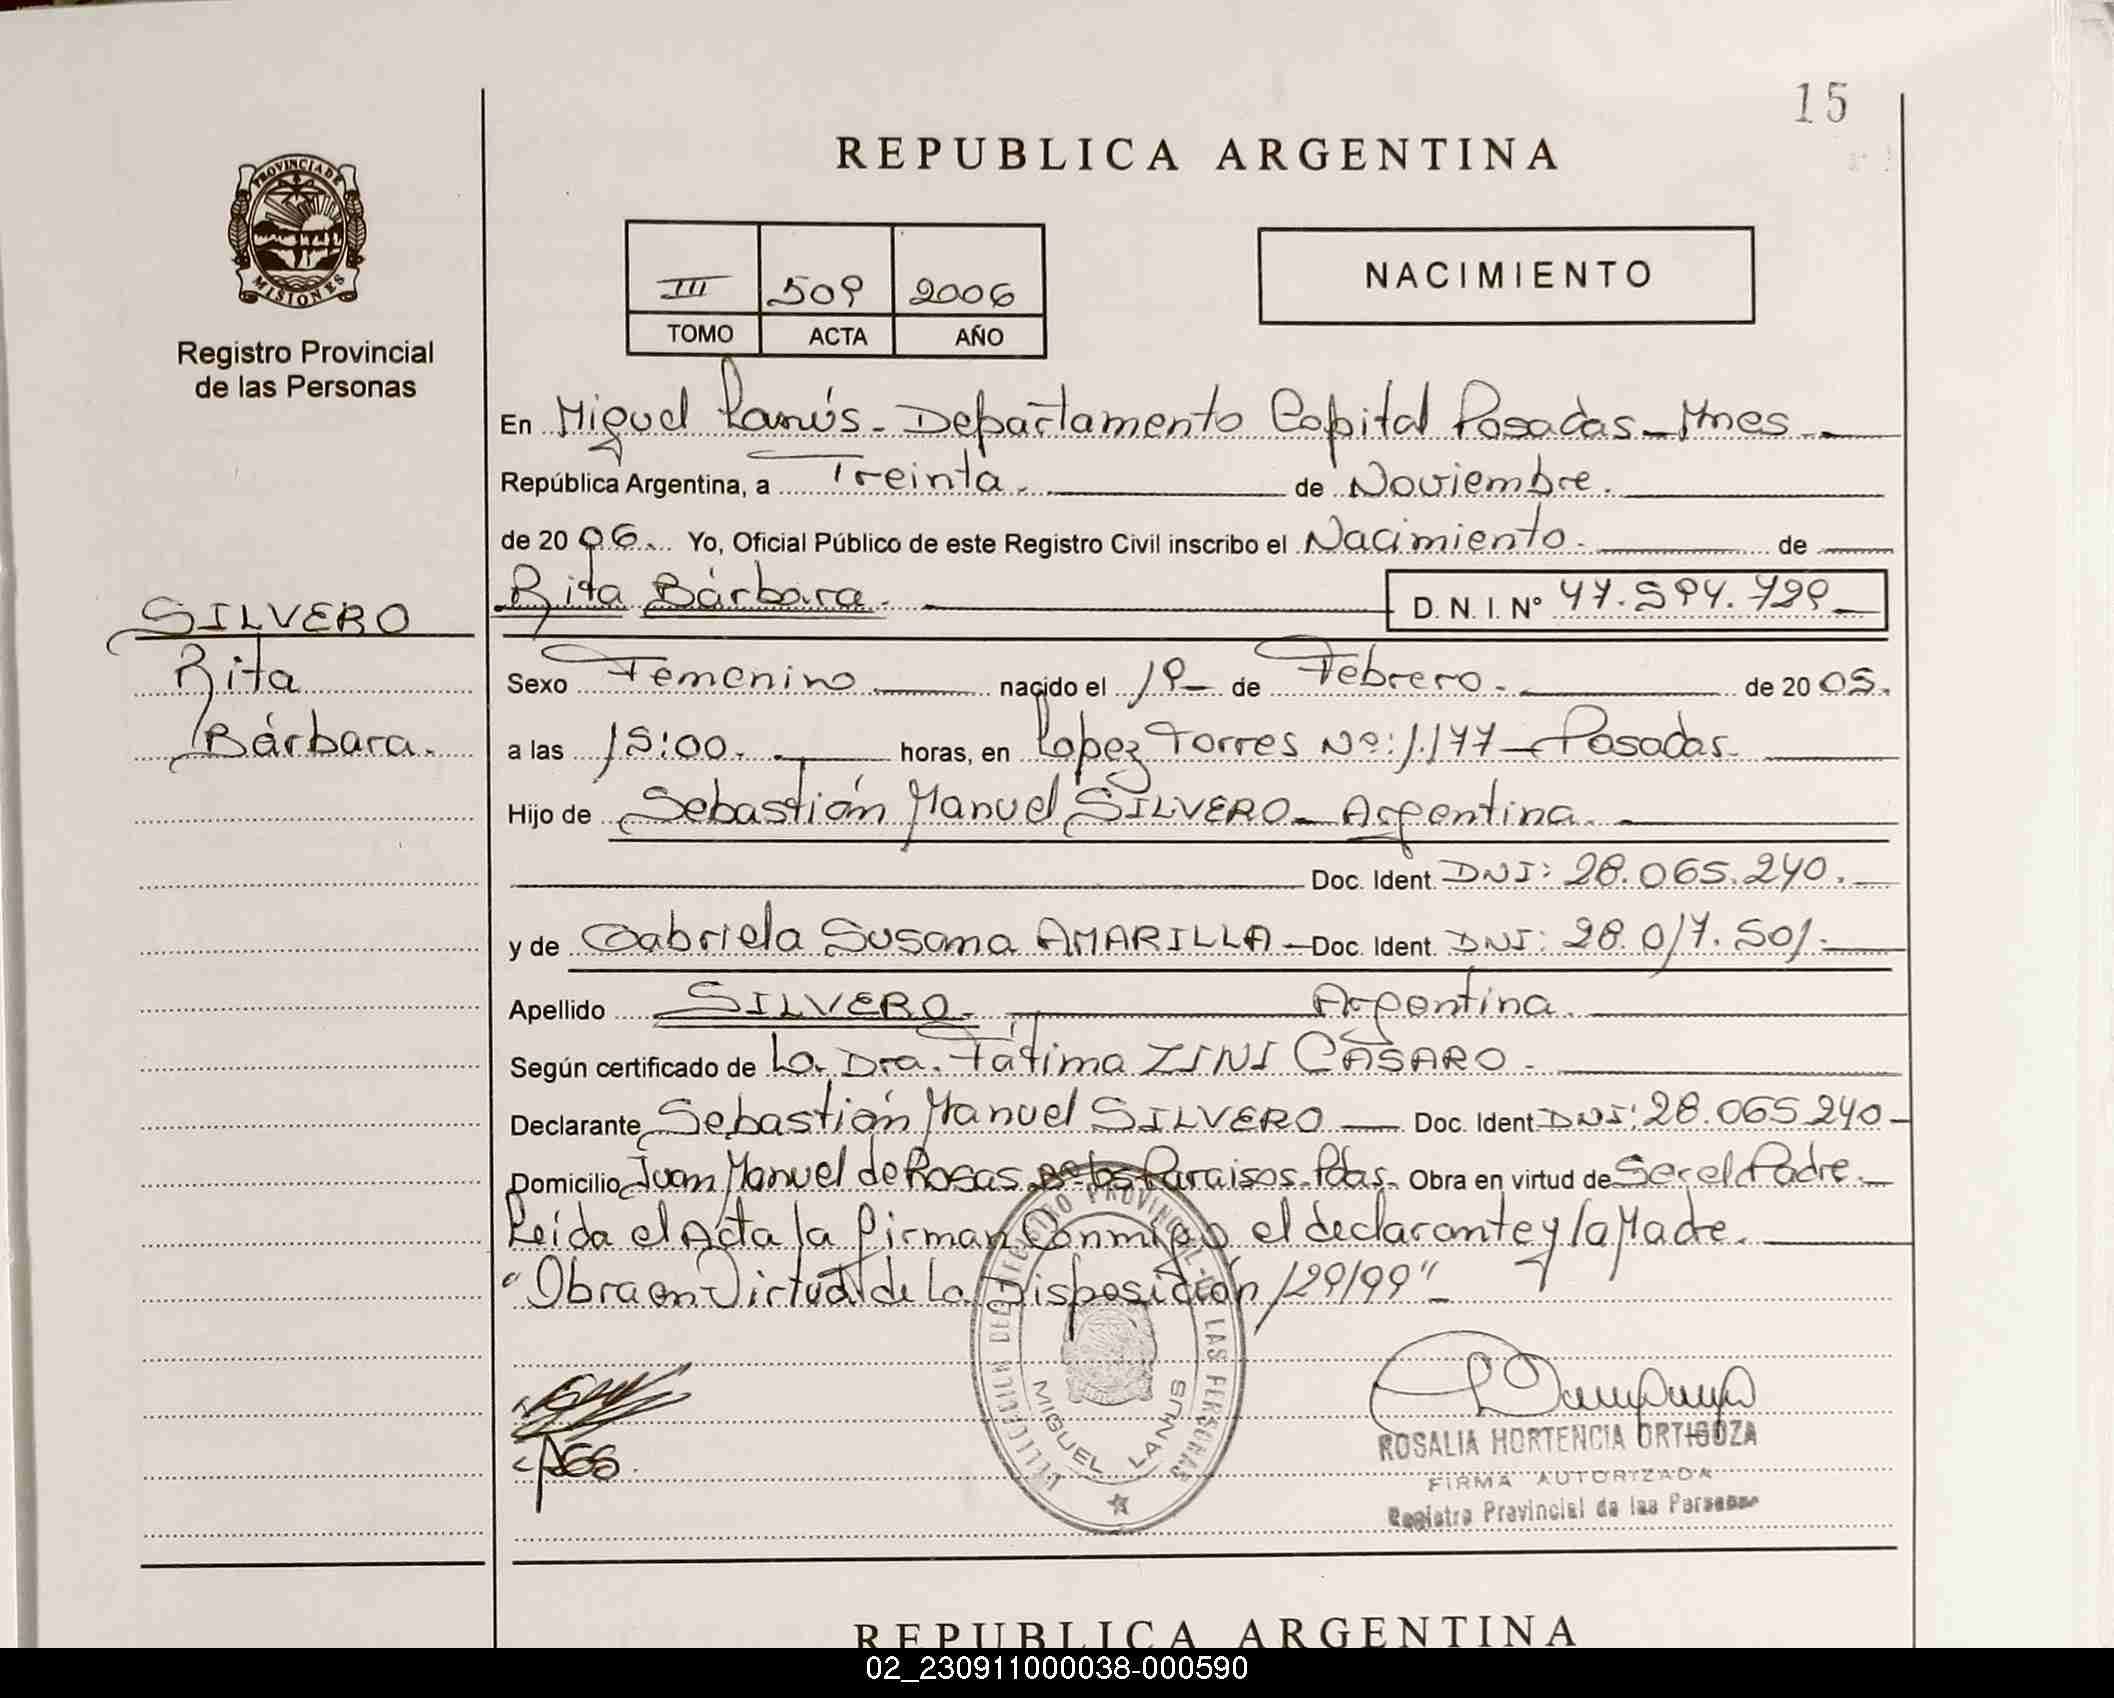 15
REPUBLICA ARGENTINA
PROVINCIA DE MISIONES
Registro Provincial
de las Personas
III 509 2006
TOMO ACTA AÑO
NACIMIENTO
En Miguel Lanús - Departamento Capital Posadas - Mnes
República Argentina, a Treinta. de Noviembre.
de 2006. Yo, Oficial Público de este Registro Civil inscribo el Nacimiento. de
Rita Bárbara. D. N. I. Nº 47.594.729
SILVERO
Rita
Bárbara.
Sexo Femenino nacido el 19 de Febrero. de 2005.
a las 15:00. horas, en Lopez Torres Nº: 1.177 - Posadas.
Hijo de Sebastián Manuel SILVERO - Argentina.
Doc. Ident. DNI: 28.065.240.
y de Gabriela Susana AMARILLA - Doc. Ident. DNI: 28.017.501.
Apellido SILVERO. Argentina.
Según certificado de La Dra. Fátima ZINI CASARO.
Declarante Sebastián Manuel SILVERO Doc. Ident DNI: 28.065.240-
Domicilio Juan Manuel de Rosas Bº Los Paraisos. Pdas. Obra en virtud de Ser el Padre.
Leída el Acta la firman Conmigo el declarante y la Madre.
"Obra en Virtud de La Disposición 129/99"
DELEGACION DEL REGISTRO PROVINCIAL DE LAS PERSONAS
MIGUEL LANUS
ROSALIA HORTENCIA ORTIGOZA
FIRMA AUTORIZADA
Registro Provincial de las Personas
REPUBLICA ARGENTINA
02_230911000038-000590